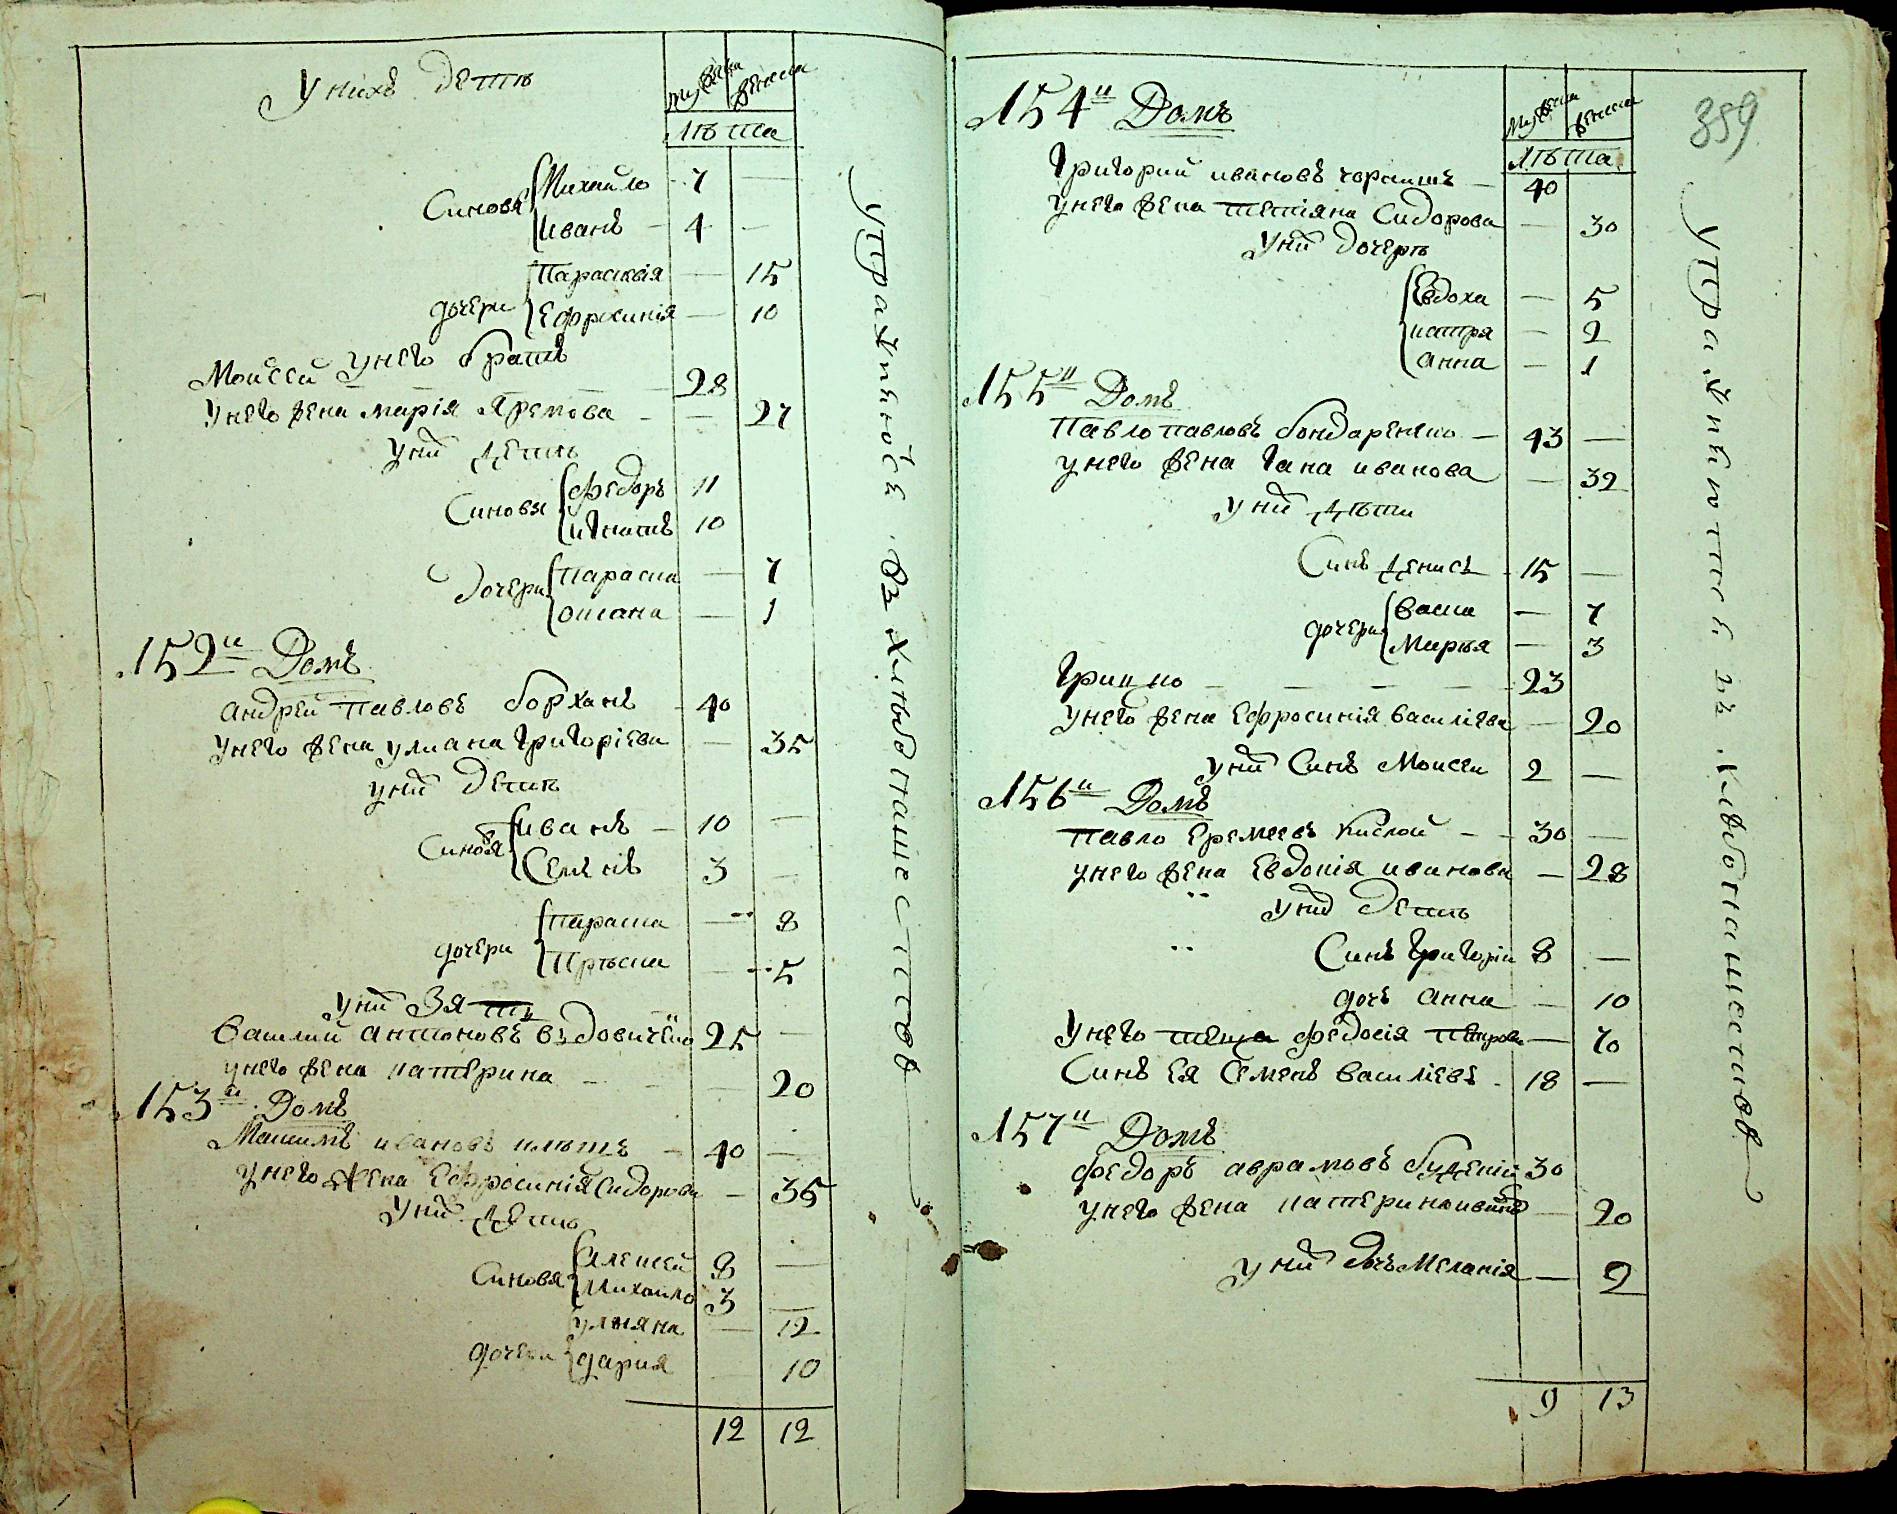 У нихъ дети
мужеска женска
Лѣта
Синовя Михайло - 7 —
Иванъ - 4 —
дочери Параскѣвія — 15
Ефросинія — 10
Моисей у него братъ 28
У него жена Марія Яремова — 27
У них дети
Синовя Федоръ 11
Игнатъ 10
Дочери Параска — 7
Оксана — 1
152й Домъ
Андрей Павловъ Борханъ 40
У него жена Улиана Григоріева — 35
у них дети
Синовя Иванъ — 10 —
Семенъ 3 —
дочери Параска — 8
Прѣска — 5
у них зять
Василий Антоновъ Вдовиченко 25 —
у него жена Катерина — 20
153й Домъ
Максимъ Ивановъ 40 —
у него жена Ефросинія Сидорова — 35
У них дети
Синовя Алексей 8 —
Михайло 3 —
дочери Улияна — 12
Дария 10
12 12
Упражняюся въ хлѣбопашестве
359
154й Домъ
мужеска женска
Лѣта
Григорий Ивановъ 40
У него жена Тетіяна Сидорова — 30
У них дочерѣ
Евдоха — 5
Катря — 2
Анна — 1
155й Домъ
Павло Павловъ Бондаренко — 43 —
у него жена Гана Иванова — 32
у них дѣти
Синъ Денисъ 15 —
дочери Васка — 7
Маря — 3
Грицко — 23
У него жена Ефросинія Василіева — 20
у них Синъ Моисей 2 —
156й Домъ
Павло Еремеевъ Кислой — 30 —
у него жена Евдокія Иванова — 28
у них дети
Синъ Григорій 8 —
дочь Анна — 10
У него теща Федосія Петрова — 70
Синъ ея Семенъ Василіевъ - 18 —
157й Домъ
Федоръ Аврамовъ 30
у него жена Катерина — 20
у них дочь Меланія — 2
9 13